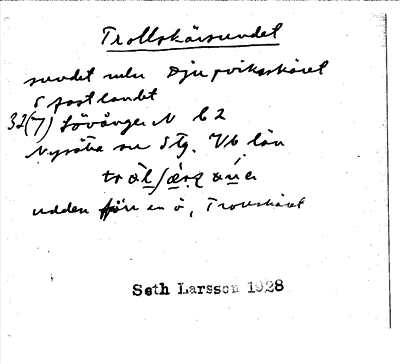 Trollskärsundet
sundet mln Djupviksskäret
o fastlandet
32(7) Lövånger N b 2
Nysätra sn Vb län
udden förr en ö, Trollskäret
Seth Larsson 1928